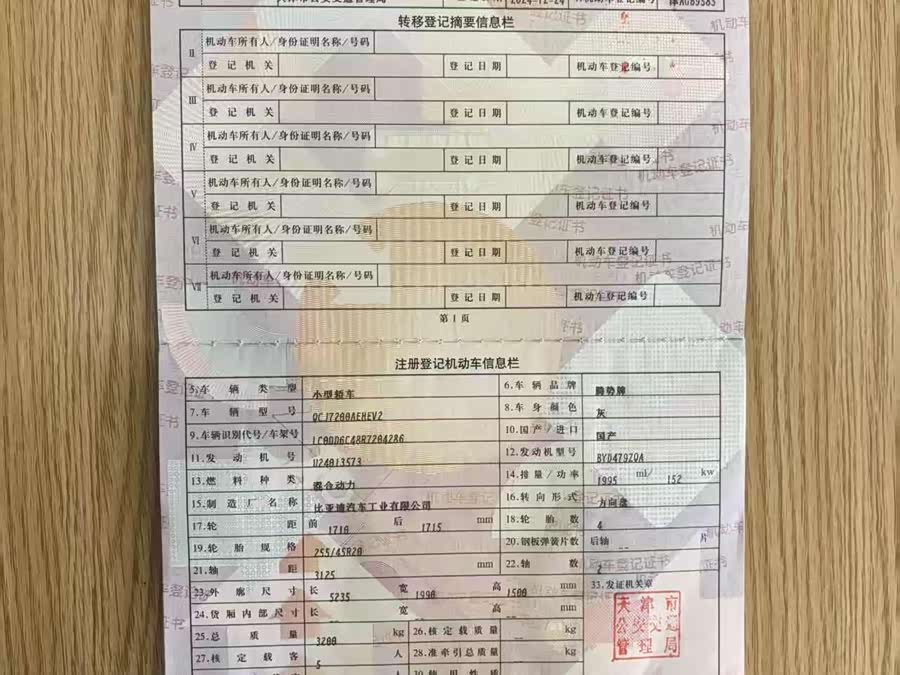 2024-12-24
转移登记摘要信息栏
II 机动车所有人/身份证明名称/号码
登记机关 登记日期 机动车登记编号
III 机动车所有人/身份证明名称/号码
登记机关 登记日期 机动车登记编号
IV 机动车所有人/身份证明名称/号码
登记机关 登记日期 机动车登记编号
V 机动车所有人/身份证明名称/号码
登记机关 登记日期 机动车登记编号
VI 机动车所有人/身份证明名称/号码
登记机关 登记日期 机动车登记编号
VII 机动车所有人/身份证明名称/号码
登记机关 登记日期 机动车登记编号
第1页
注册登记机动车信息栏
5.车辆类型 小型轿车 6.车辆品牌 腾势牌
7.车辆型号 QCJ7200AEHEV2 8.车身颜色 灰
9.车辆识别代号/车架号 LC0DD6C48R7204286 10.国产/进口 国产
11.发动机号 U24013573 12.发动机型号 BYD479ZQA
13.燃料种类 混合动力 14.排量/功率 1995 ml/ 152 kw
15.制造厂名称 比亚迪汽车工业有限公司 16.转向形式 方向盘
17.轮距 前 1710 后 1715 mm 18.轮胎数 4
19.轮胎规格 255/45R20 20.钢板弹簧片数 后轴 -- 片
21.轴距 3125 mm 22.轴数 2
23.外廓尺寸 长 5235 宽 1990 高 1500 mm 33.发证机关章
24.货厢内部尺寸 长 -- 宽 -- 高 -- mm
25.总质量 3200 kg 26.核定载质量 -- kg
27.核定载客 5 人 28.准牵引总质量 kg
人 30.使用性质
天津市
公安交通
管理局